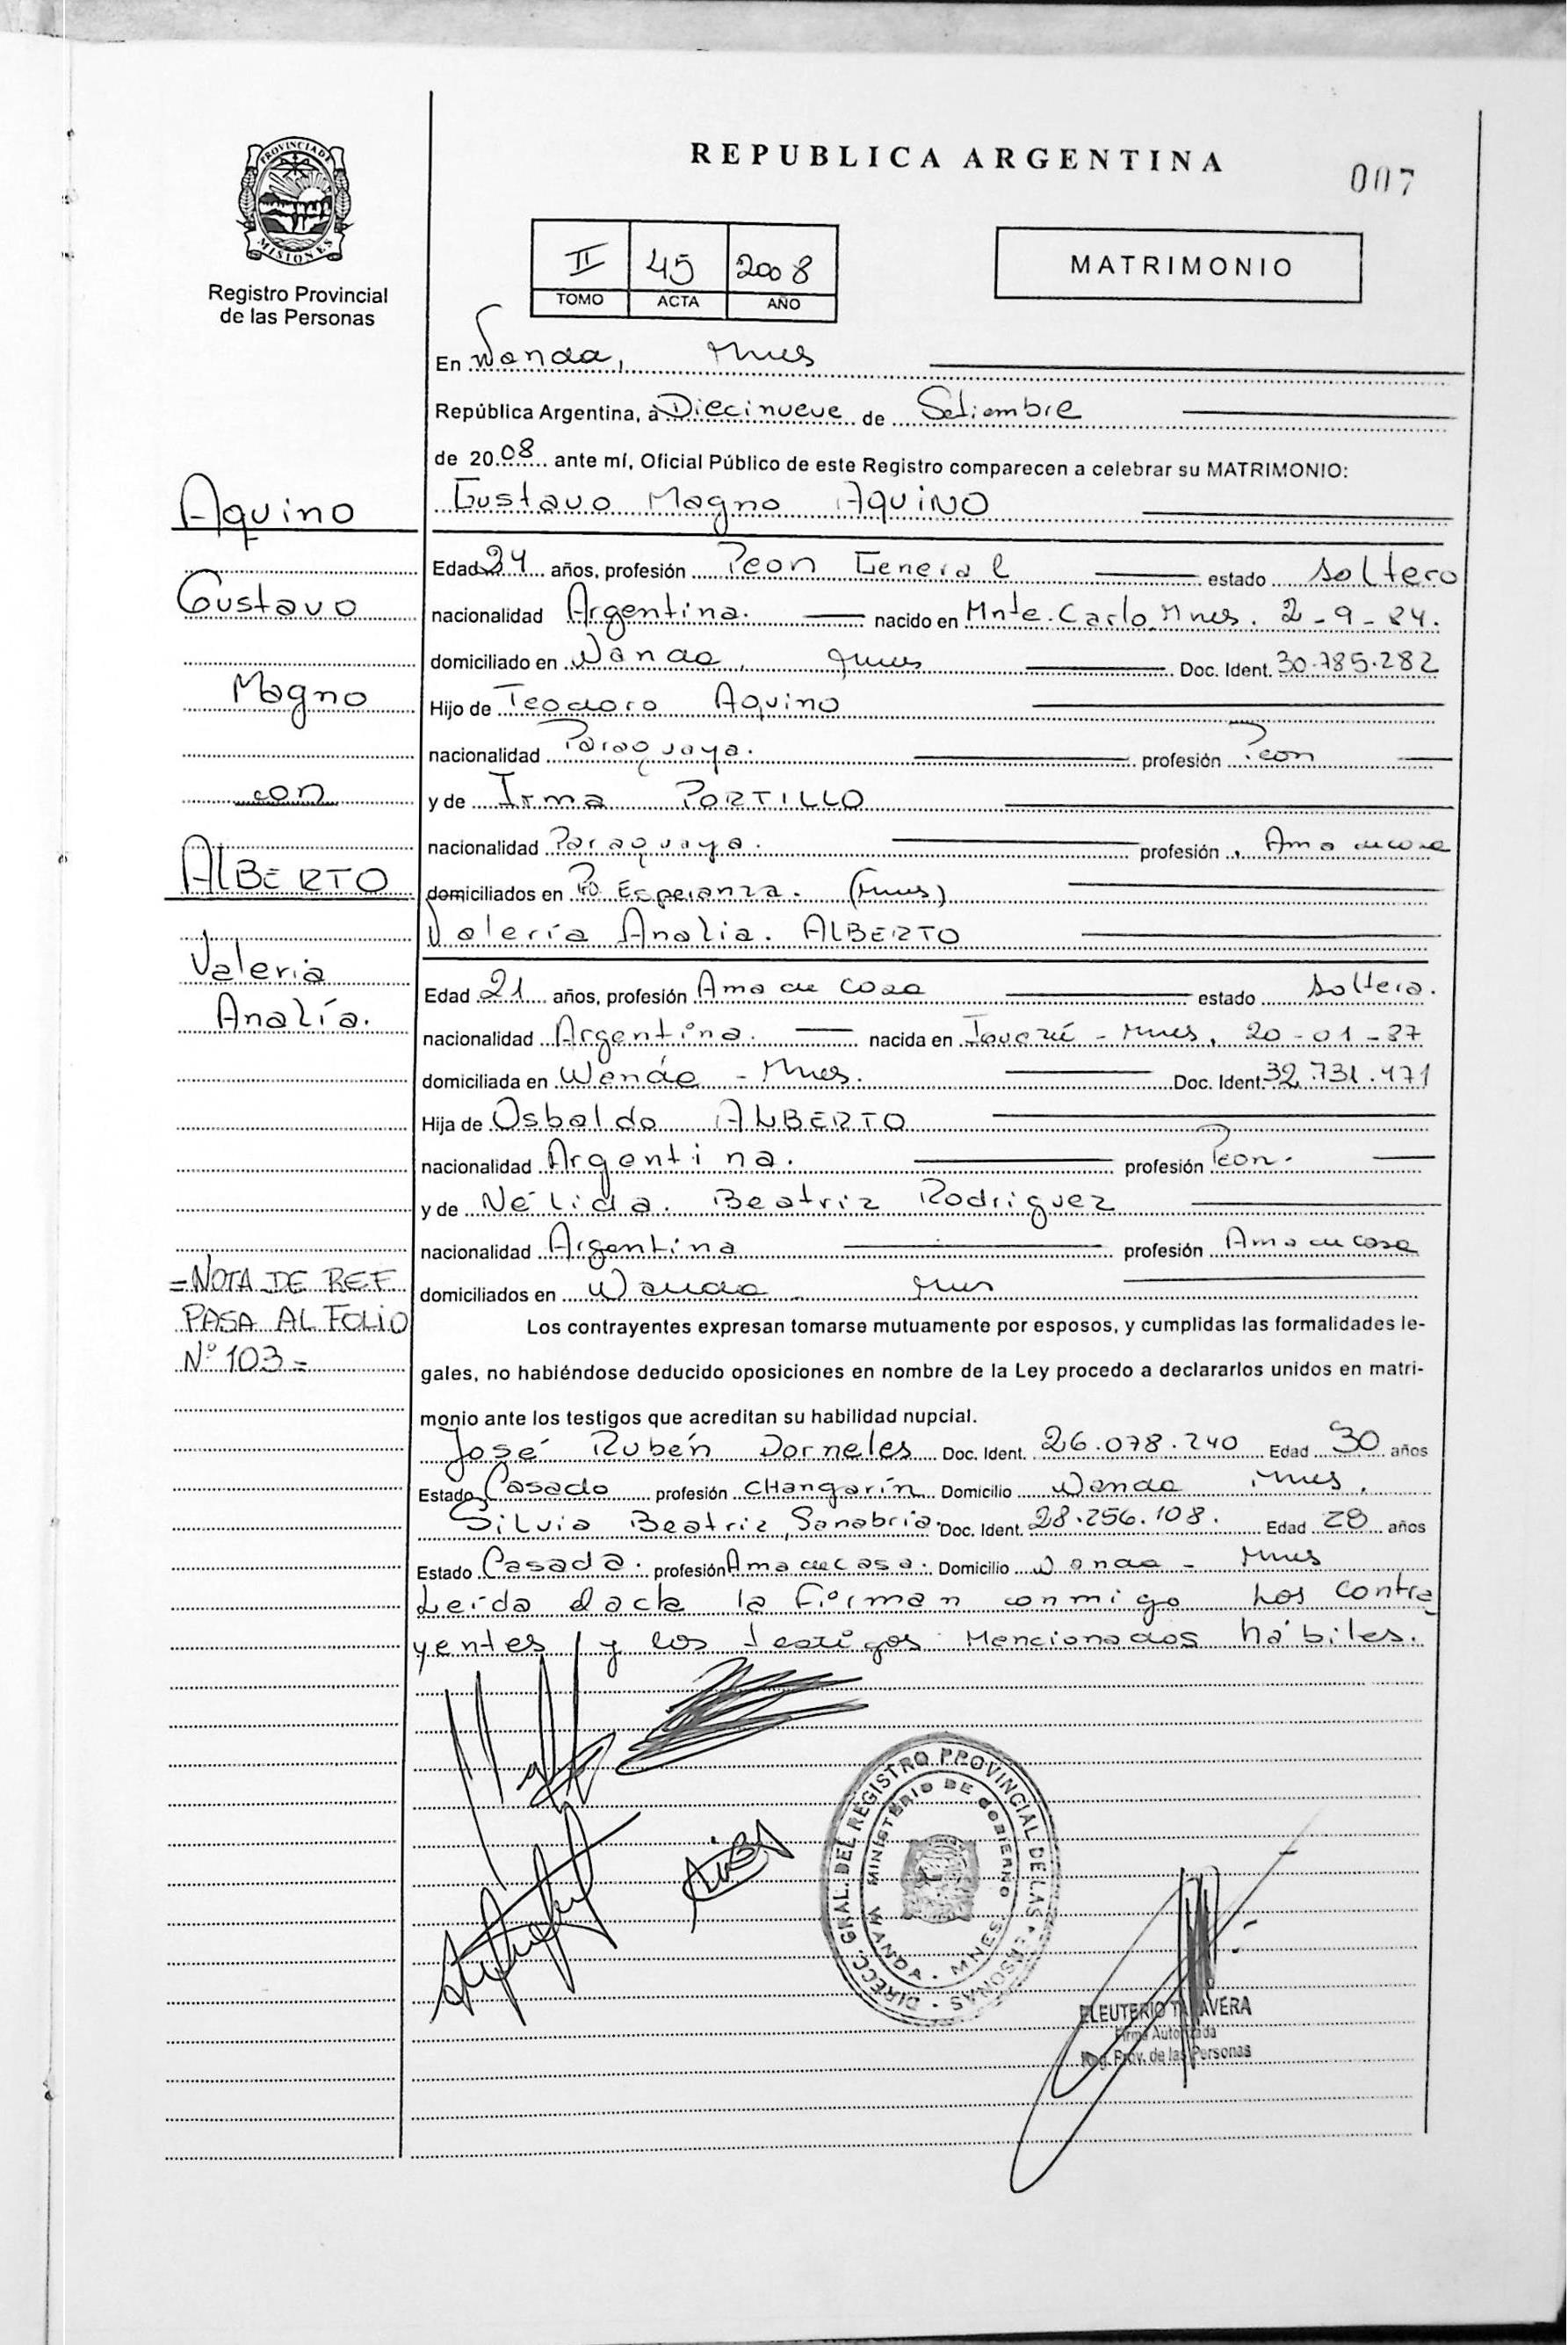 REPUBLICA ARGENTINA
007
PROVINCIA DE
MISIONES
Registro Provincial
de las Personas
II 45 2008
TOMO ACTA AÑO
MATRIMONIO
En Wanda, Mnes
República Argentina, a Diecinueve de Setiembre
de 2008 ante mí, Oficial Público de este Registro comparecen a celebrar su MATRIMONIO:
Gustavo Magno AQUINO
Edad 24 años, profesión Peon General estado soltero
nacionalidad Argentina. nacido en Mnte. Carlo, Mnes. 2-9-84.
domiciliado en Wanda, Mnes Doc. Ident. 30.785.282
Hijo de Teodoro Aquino
nacionalidad Paraguaya. profesión Peon
y de Irma PORTILLO
nacionalidad Paraguaya. profesión Ama de casa
domiciliados en Pto. Esperanza. (Mnes)
Valería Analia. ALBERTO
Edad 21 años, profesión Ama de casa estado soltera.
nacionalidad Argentina. nacida en Mnes, 20-01-87
domiciliada en Wanda - Mnes. Doc. Ident. 32.731.471
Hija de Osbaldo ALBERTO
nacionalidad Argentina. profesión Peon.
y de Nélida. Beatriz Rodriguez
nacionalidad Argentina profesión Ama de casa
domiciliados en Wanda Mnes
Los contrayentes expresan tomarse mutuamente por esposos, y cumplidas las formalidades le-
gales, no habiéndose deducido oposiciones en nombre de la Ley procedo a declararlos unidos en matri-
monio ante los testigos que acreditan su habilidad nupcial.
José Rubén Dorneles Doc. Ident. 26.078.240 Edad 30 años
Estado Casado profesión CHangarín Domicilio Wanda Mnes.
Silvia Beatriz Sanabria. Doc. Ident. 28.256.108. Edad 28 años
Estado Casada. profesión Ama de casa. Domicilio Wanda - Mnes
Leída el acta la Firman conmigo Los contra
yentes y los testigos Mencionados hábiles.
Aquino
Gustavo
Magno
con
ALBERTO
Valeria
Analía.
=NOTA DE REF.
PASA AL FOLIO
Nº 103=
DIRECC. GRAL. DEL REGISTRO PROVINCIAL DE LAS PERSONAS
MINISTERIO DE GOBIERNO
WANDA - MNES.
ELEUTERIO TALAVERA
Firma Autorizada
Reg. Prov. de las Personas